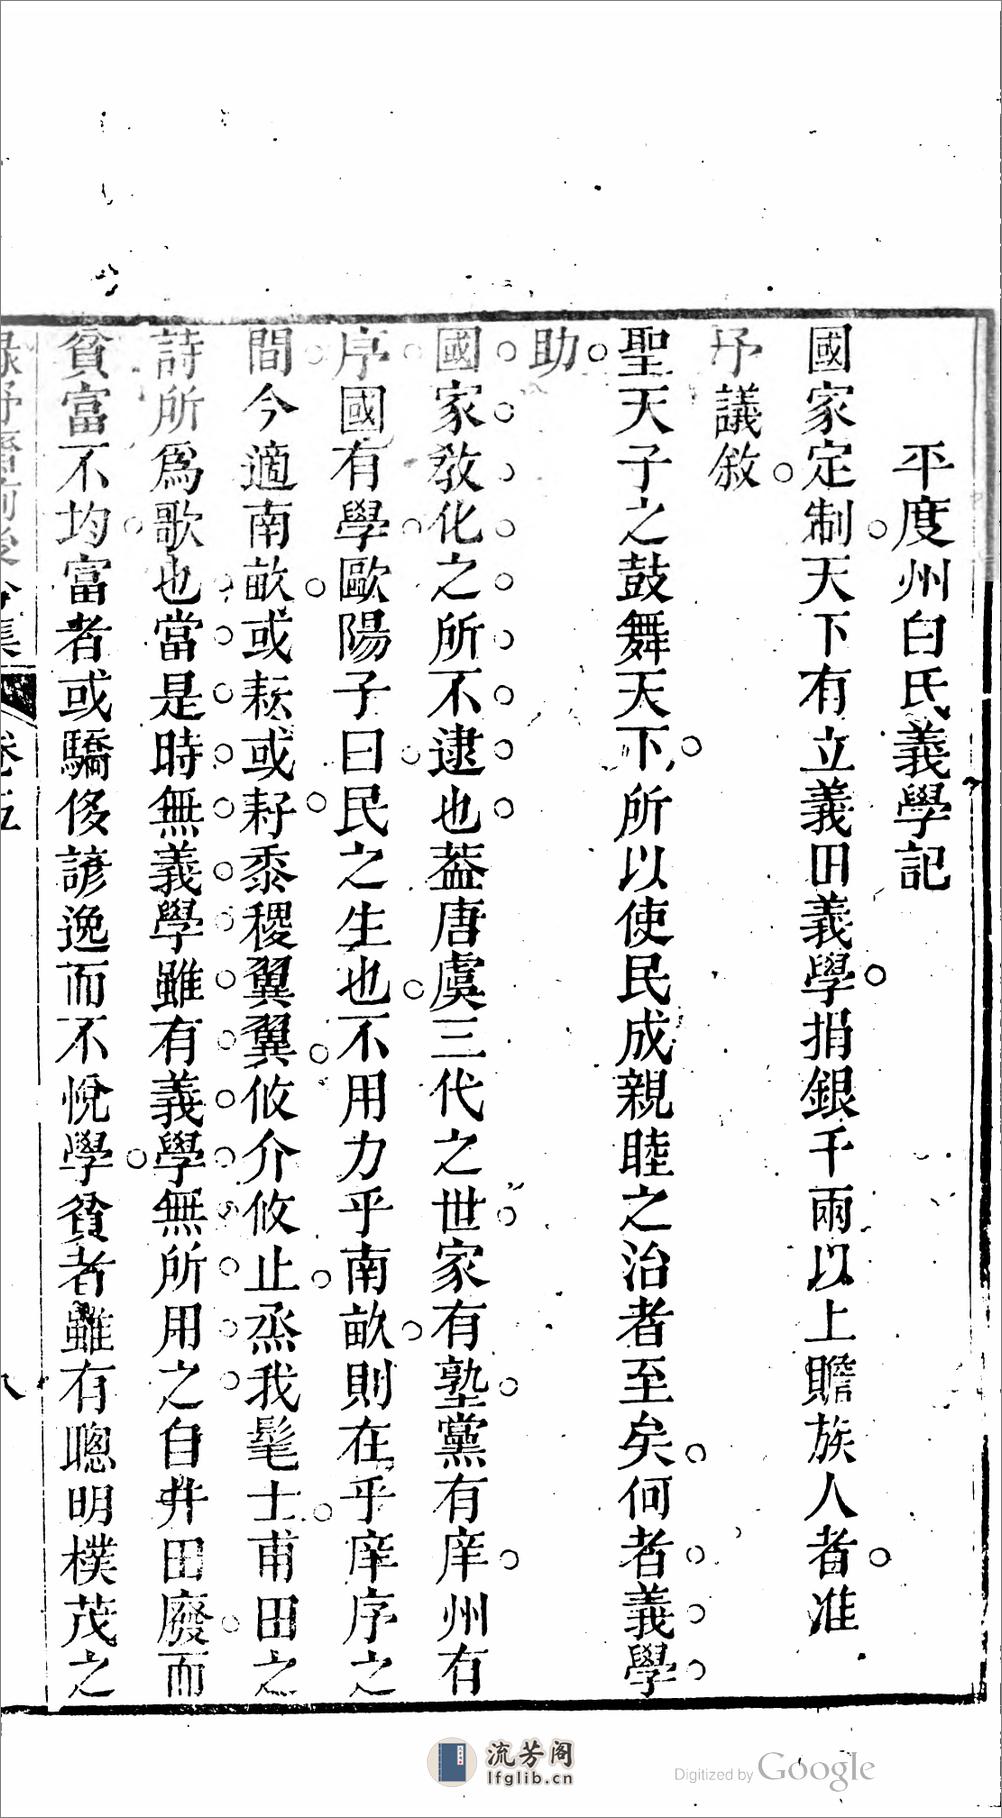 平度州白氏義學記
國家定制天下有立義田義學捐銀千兩以上贍族人者准
予議敘
聖天子之鼓舞天下所以使民成親睦之治者至矣何者義學
助
國家敎化之所不逮也葢唐虞三代之世家有塾黨有庠州有
序國有學歐陽子曰民之生也不用力乎南畝則在乎庠序之
間今適南畝或耘或耔黍稷翼翼攸介攸止烝我髦士甫田之
詩所爲歌也當是時無義學雖有義學無所用之自井田廢而
貧富不均富者或驕侈諺逸而不悅學貧者雖有聰明樸茂之
卷五
八
流芳阁
lfglib.cn
Digitized by Google